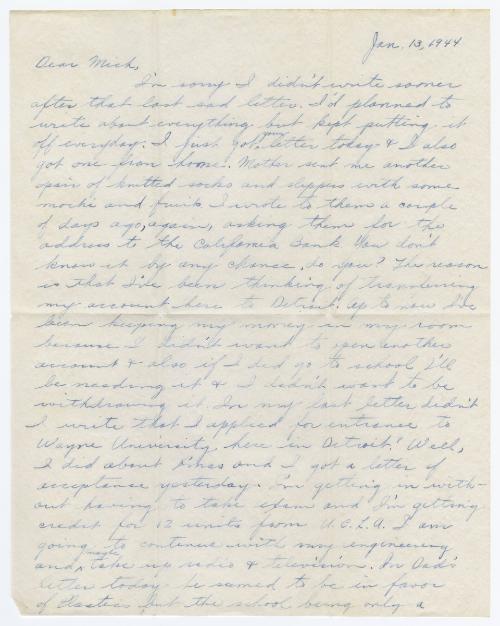 Jan. 13, 1944
Dear Mich,
I'm sorry I didn't write sooner
after that last sad letter. I'd planned to
write about everything but kept putting it
off everyday. I just got your letter today & I also
got one from home. Mother sent me another
pair of knitted socks and slippers with some
mochi and fruits. I wrote to them a couple
of days ago, again, asking them for the
address to the California Bank. You don't
know it by any chance, do you? The reason
is that I've been thinking of transferring
my account here to Detroit. Up to now I've
been keeping my money in my room
because I didn't want to open another
account & also if I did go to school I'll
be needing it & I didn't want to be
withdrawing it. In my last letter didn't
I write that I applied for entrance to
Wayne University here in Detroit? Well,
I did about Xmas and I got a letter of
acceptance yesterday. I'm getting in with-
out having to take exam and I'm getting
credit for 12 units from U.C.L.A. I am
going to continue with my engineering
and maybe take up radio & television. In Dad's
letter today he seemed to be in favor
of Plastics but the school being only a